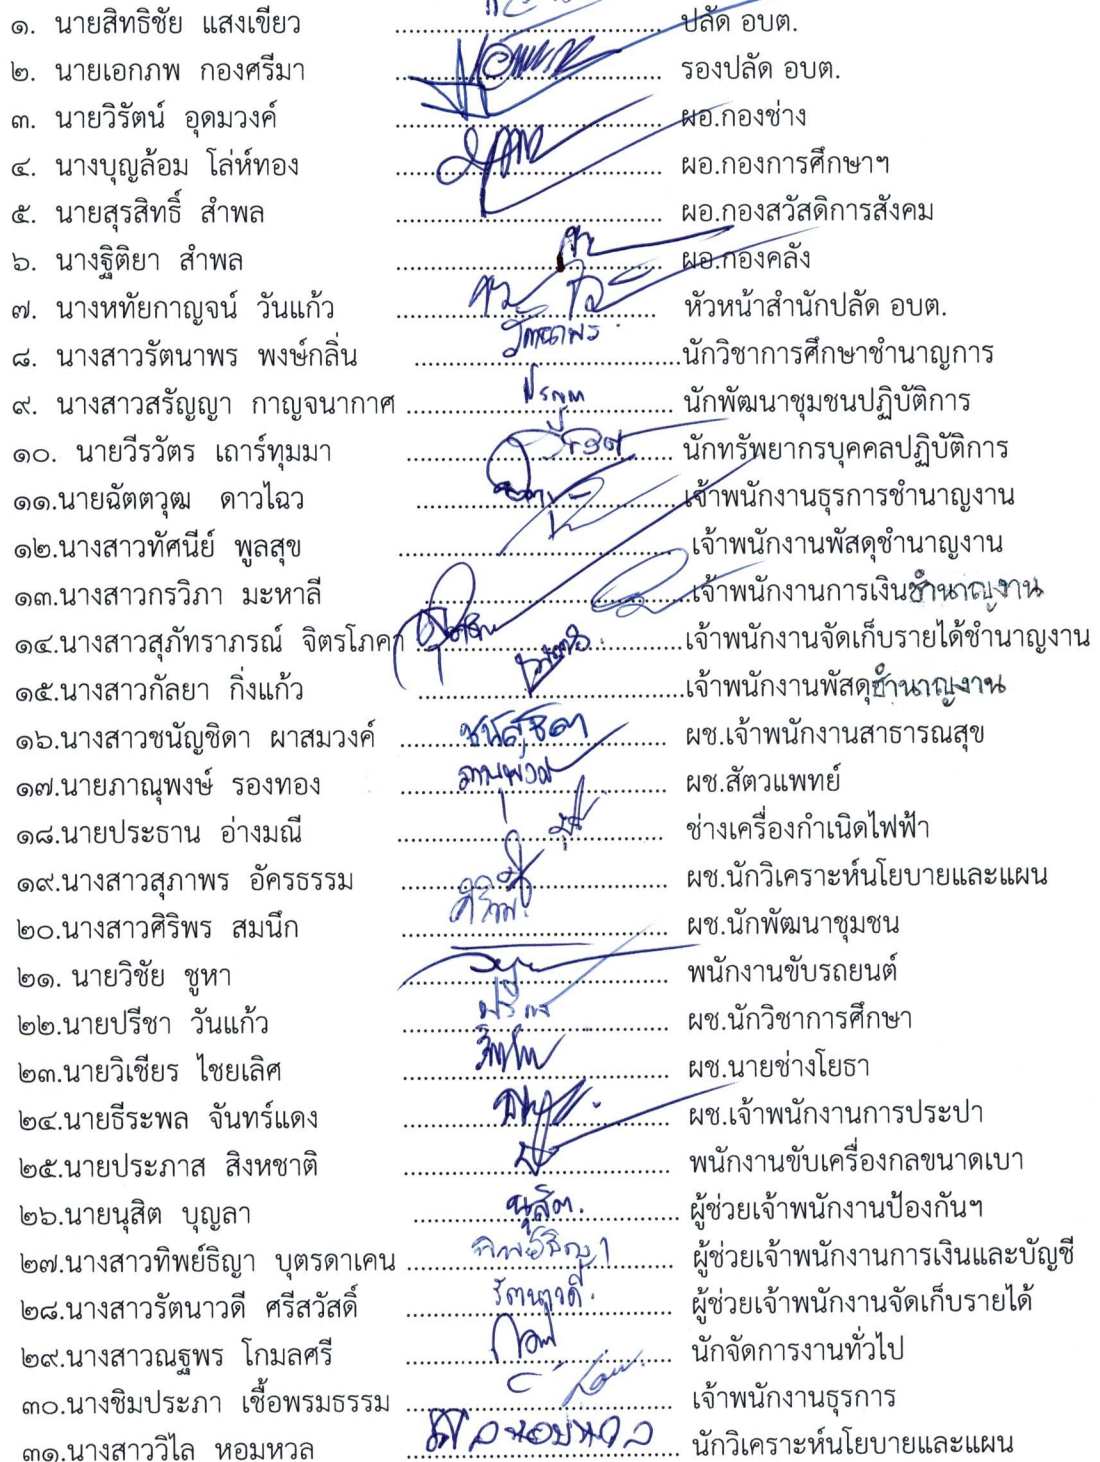 ๑. นายสิทธิชัย แสงเขียว ปลัด อบต.
๒. นายเอกภพ กองศรีมา รองปลัด อบต.
๓. นายวิรัตน์ อุดมวงค์ ผอ.กองช่าง
๔. นางบุญล้อม โล่ห์ทอง ผอ.กองการศึกษาฯ
๕. นายสุรสิทธิ์ สำพล ผอ.กองสวัสดิการสังคม
๖. นางฐิติยา สำพล ผอ.กองคลัง
๗. นางหทัยกาญจน์ วันแก้ว หัวหน้าสำนักปลัด อบต.
๘. นางสาวรัตนาพร พงษ์กลิ่น รัตนาพร นักวิชาการศึกษาชำนาญการ
๙. นางสาวสรัญญา กาญจนากาศ นักพัฒนาชุมชนปฏิบัติการ
๑๐. นายวีรวัตร เถาร์ทุมมา นักทรัพยากรบุคคลปฏิบัติการ
๑๑.นายฉัตตวุฒ ดาวไฉว เจ้าพนักงานธุรการชำนาญงาน
๑๒.นางสาวทัศนีย์ พูลสุข เจ้าพนักงานพัสดุชำนาญงาน
๑๓.นางสาวกรวิภา มะหาลี เจ้าพนักงานการเงินชำนาญงาน
๑๔.นางสาวสุภัทราภรณ์ จิตรโภคา เจ้าพนักงานจัดเก็บรายได้ชำนาญงาน
๑๕.นางสาวกัลยา กิ่งแก้ว เจ้าพนักงานพัสดุชำนาญงาน
๑๖.นางสาวชนัญชิดา ผาสมวงค์ ผช.เจ้าพนักงานสาธารณสุข
๑๗.นายภาณุพงษ์ รองทอง ผช.สัตวแพทย์
๑๘.นายประธาน อ่างมณี ช่างเครื่องกำเนิดไฟฟ้า
๑๙.นางสาวสุภาพร อัครธรรม ผช.นักวิเคราะห์นโยบายและแผน
๒๐.นางสาวศิริพร สมนึก ผช.นักพัฒนาชุมชน
๒๑. นายวิชัย ชูหา พนักงานขับรถยนต์
๒๒.นายปรีชา วันแก้ว ผช.นักวิชาการศึกษา
๒๓.นายวิเชียร ไชยเลิศ ผช.นายช่างโยธา
๒๔.นายธีระพล จันทร์แดง ผช.เจ้าพนักงานการประปา
๒๕.นายประภาส สิงหชาติ พนักงานขับเครื่องกลขนาดเบา
๒๖.นายนุสิต บุญลา นุสิต. ผู้ช่วยเจ้าพนักงานป้องกันฯ
๒๗.นางสาวทิพย์ธิญา บุตรดาเคน ทิพย์ธิญา ผู้ช่วยเจ้าพนักงานการเงินและบัญชี
๒๘.นางสาวรัตนาวดี ศรีสวัสดิ์ รัตนาวดี. ผู้ช่วยเจ้าพนักงานจัดเก็บรายได้
๒๙.นางสาวณฐพร โกมลศรี นักจัดการงานทั่วไป
๓๐.นางชิมประภา เชื้อพรมธรรม เจ้าพนักงานธุรการ
๓๑.นางสาววิไล หอมหวล นักวิเคราะห์นโยบายและแผน